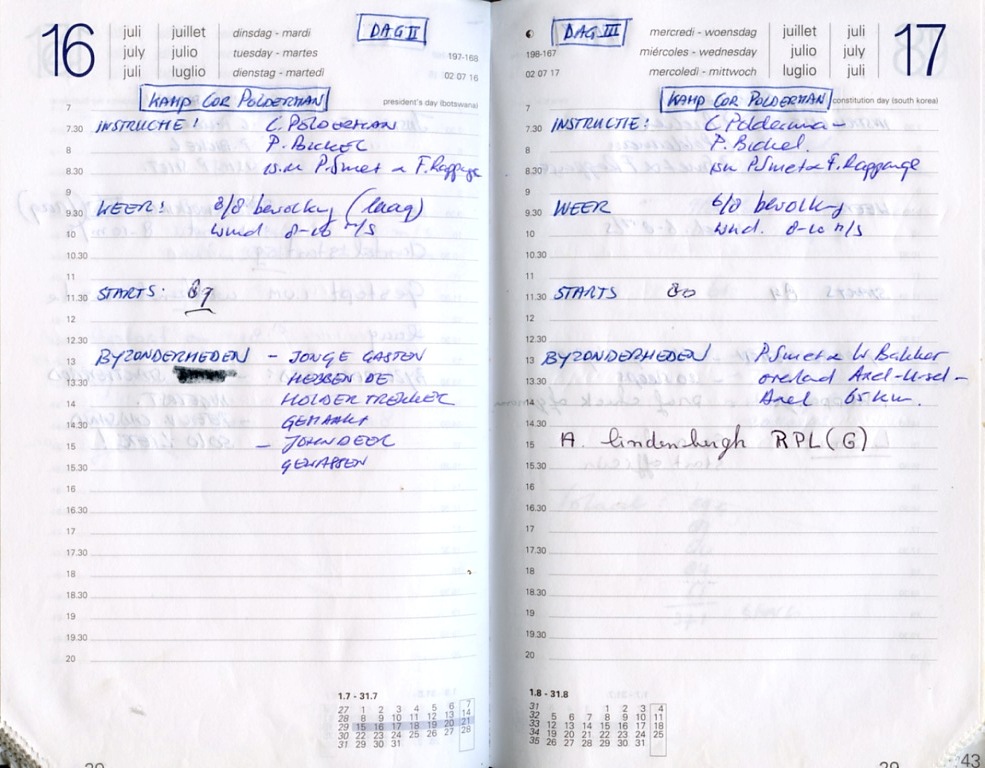 16
juli juillet dinsdag - mardi
july julio tuesday - martes
juli luglio dienstag - martedì
DAG II
197-168
02 07 16
KAMP COR POLDERMAN
president's day (botswana)
7
7.30 INSTRUCTIE! C. POLDERMAN
8 P. BICKEL
8.30 P. Smet F. Raggage
9
9.30 WEER! 8/8 bewolky (laag)
10 wind 8-10 m/s
10.30
11
11.30 STARTS: 87
12
12.30
13 BYZONDERHEDEN - JONGE GASTEN
13.30 HEBBEN DE
14 HOLDER TREKKER
14.30 GEMAAKT
15 - JOHN DEER
15.30 GEWASSEN
16
16.30
17
17.30
18
18.30
19
19.30
20
1.7 - 31.7
27 1 2 3 4 5 6 7
28 8 9 10 11 12 13 14
29 15 16 17 18 19 20 21
30 22 23 24 25 26 27 28
31 29 30 31
DAG III
mercredi - woensdag juillet juli
miércoles - wednesday julio july
mercoledì - mittwoch luglio juli
17
198-167
02 07 17
KAMP COR POLDERMAN
constitution day (south korea)
7
7.30 INSTRUCTIE: C Polderman
8 P. Bickel.
8.30 P Smet F. Raggage
9
9.30 WEER 6/8 bewolky
10 wind. 8-10 m/s
10.30
11
11.30 STARTS 80
12
12.30
13 BYZONDERHEDEN P Smet W Bakker
13.30 overland Axel-Ursel-
14 Axel 65 km.
14.30
15 A. lindenbergh RPL(G)
15.30
16
16.30
17
17.30
18
18.30
19
19.30
20
1.8 - 31.8
31 1 2 3 4
32 5 6 7 8 9 10 11
33 12 13 14 15 16 17 18
34 19 20 21 22 23 24 25
35 26 27 28 29 30 31
43